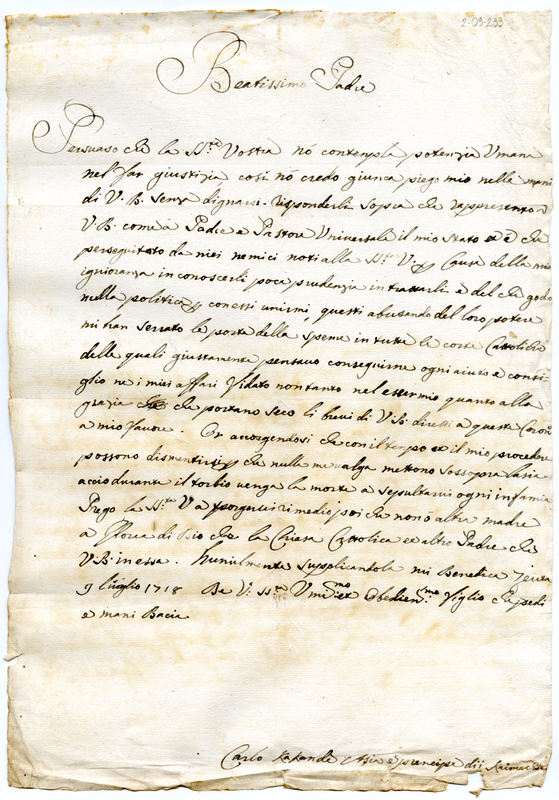 2-09-233
Beatissimo Padre
Persuaso che la SS.tà Vostra nó contempla potenzia Umana
nel far giustizia cosi nó credo giunca piego mio nelle mani
di V.B. senza dignarsi risponderli sopra che rappresento a
V.B. come à Padre e Pastore Universale il mio stato et è che
perseguitato da miei nemici noti alla SS.tà V. Causa della mia
ignioranza in conoscerli poca prudenzia in trattarli e del che gode
nella politica con essi unirmi, questi abusando del loro potere
mi han serrato le porte della speme in tutte le corte Cattoliche
delle quali giustamente pensavo conseguirne ogni aiuto e consi
glio ne i miei affari fidato non tanto nel esser mio quanto alla
grazia che portano seco li brevi di V.B. diretti a queste Corone
a mio favore. Or accorgendosi che con il tempo et il mio procedere
possono dismentirsi che nulla me valga mettono sossopra l'asia
acciò durante il torbio venga la morte a sepultarvi ogni infamia
Prego la SS.tà V. a porgervi rimedio poi che non ó altra madre
a Gloria di Dio che la Chiesa Cattolica et altro Padre che
V.B. in essa. humilmente supplicandola mi Benedica
9 luglio 1718 De V. SS.tà Umil.mo et Obedien.mo Figlio che piedi
e mani Bacia
Carlo Prencipe di